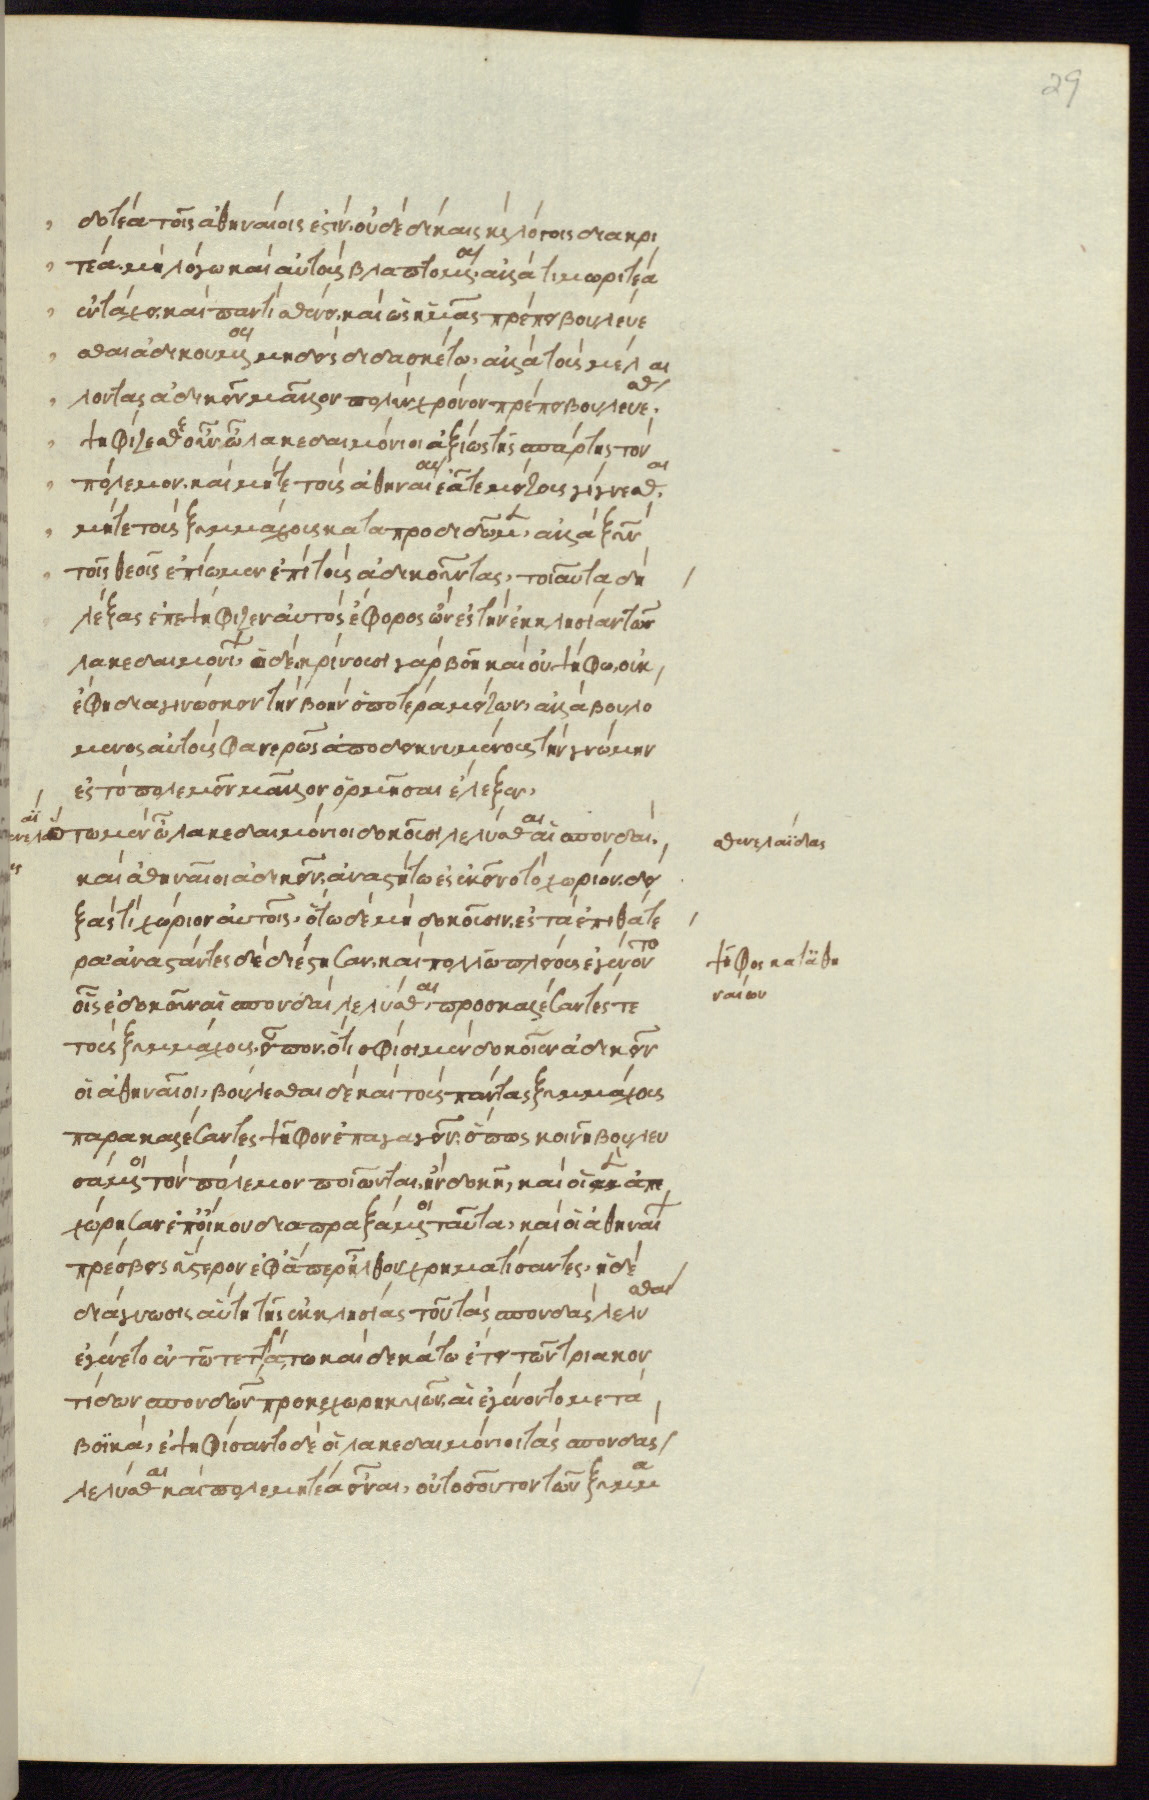 29
δοτέα τοῖς ἀθηναίοις ἐστίν. οὐδὲ δίκαις καὶ λόγοις διακρι
τέα. μὴ λόγω καὶ αὐτοὺς βλαπτομένους. ἀλλὰ τιμωριτέα
ἐν τάχει. καὶ παντὶ σθένει. καὶ ὡς ἡμᾶς πρέπει βουλεύε
σθαι ἀδικουμένους μηδεὶς διδασκέτω. ἀλλὰ τοὺς μέλ
λοντας ἀδικεῖν μᾶλλον πολὺν χρόνον πρέπει βουλεύεσθαι.
ψηφίζεσθε οὖν ὦ λακεδαιμόνιοι ἀξίως τῆς σπάρτης τὸν
πόλεμον. καὶ μήτε τοὺς ἀθηναίους ἐᾶτε μείζους γίγνεσθαι.
μήτε τοὺς ξυμμάχους καταπροδιδῶμεν. ἀλλὰ ξὺν
τοῖς θεοῖς ἐπίωμεν ἐπὶ τοὺς ἀδικοῦντας. τοιαῦτα δὴ
λέξας ἐπεψήφιζεν αὐτὸς ἔφορος ὢν ἐς τὴν ἐκκλησίαν τῶν
λακεδαιμονίων. ὁ δὲ κρίνουσι γὰρ βοῆ καὶ οὐ ψήφω. οὐκ
ἔφη διαγινώσκειν τὴν βοὴν ὁποτέρα μείζων. ἀλλὰ βουλό
μενος αὐτοὺς φανερῶς ἀποδεικνυμένους τὴν γνώμην
ἐς τὸ πολεμεῖν μᾶλλον ὁρμῆσαι ἔλεξεν.
ὅτω μὲν ὦ λακεδαιμόνιοι δοκοῦσι λελύσθαι αἱ σπονδαί.
σθενελαΐδας
καὶ ἀθηναῖοι ἀδικεῖν. ἀναστήτω ἐς ἐκεῖνο τὸ χωρίον. δεί
ξας τὶ χωρίον αὐτοῖς. ὅτω δὲ μὴ δοκοῦσιν. ἐς τὰ ἐπὶ θάτε
ρα. ἀναστάντες δὲ διέστησαν. καὶ πολλῶ πλείους ἐγένοντο
ψῆφος κατ' ἀθη
ναίων
οἷς ἐδόκουν αἱ σπονδαὶ λελύσθαι. προσκαλέσαντές τε
τοὺς ξυμμάχους. εἶπον. ὅτι σφίσι μὲν δοκοῖεν ἀδικεῖν
οἱ ἀθηναῖοι. βούλεσθαι δὲ καὶ τοὺς πάντας ξυμμάχους
παρακαλέσαντες ψῆφον ἐπαγαγεῖν. ὅπως κοινῆ βουλευ
σάμενοι τὸν πόλεμον ποιῶνται. ἢν δοκῆ. καὶ οἱ μὲν ἀπε
χώρησαν ἐπ' οἴκου διαπραξάμενοι ταῦτα. καὶ οἱ ἀθηναίων
πρέσβεις ὕστερον ἐφ' ἅπερ ἦλθον χρηματίσαντες. ἡ δὲ
διάγνωσις αὕτη τῆς ἐκκλησίας τοῦ τὰς σπονδὰς λελύσθαι
ἐγένετο ἐν τῶ τετάρτω καὶ δεκάτω ἔτει τῶν τριακον
τίδων σπονδῶν προκεχωρηκυιῶν. αἳ ἐγένοντο μετὰ
βοϊκά. ἐψηφίσαντο δὲ οἱ λακεδαιμόνιοι τὰς σπονδὰς
λελύσθαι καὶ πολεμητέα εἶναι. οὐ τοσοῦτον τῶν ξυμμα